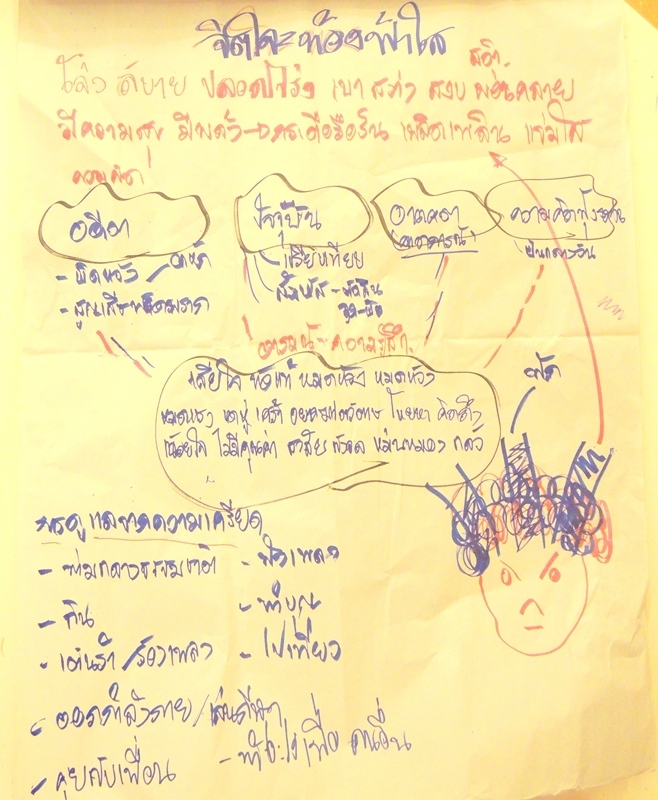 จิตใจ=ท้องฟ้าใส
สติ
โล่ง สบาย ปลอดโปร่ง เบา สว่าง สงบ ผ่อนคลาย
มีความสุข มีพลัง กระตือรือร้น เพลิดเพลิน แจ่มใส
ความคิด
อดีต
- ผิดหวัง /
- สูญเสีย-พลัดพราก
ปัจจุบัน
- เปรียบเทียบ
อนาคต
(คาดการณ์)
ความคิดฟุ้งซ่าน
ฝันกลางวัน
อารมณ์-ความรู้สึก
เสียใจ ท้อแท้ หมดหวัง หมดหวัง
หดหู่ เศร้า โหยหา คิดถึง
น้อยใจ ไม่มีคุณค่า กังวล หม่นหมอง กลัว
การดูแลจากความเครียด
- ท่ามกลางธรรมชาติ
- กิน
- เต้นรำ /ร้องเพลง
- ออกกำลังกาย/เล่นกีฬา
- คุยกับเพื่อน
- ฟังเพลง
- ทำบุญ
- ไปเที่ยว
- ทำอะไรเพื่อคนอื่น